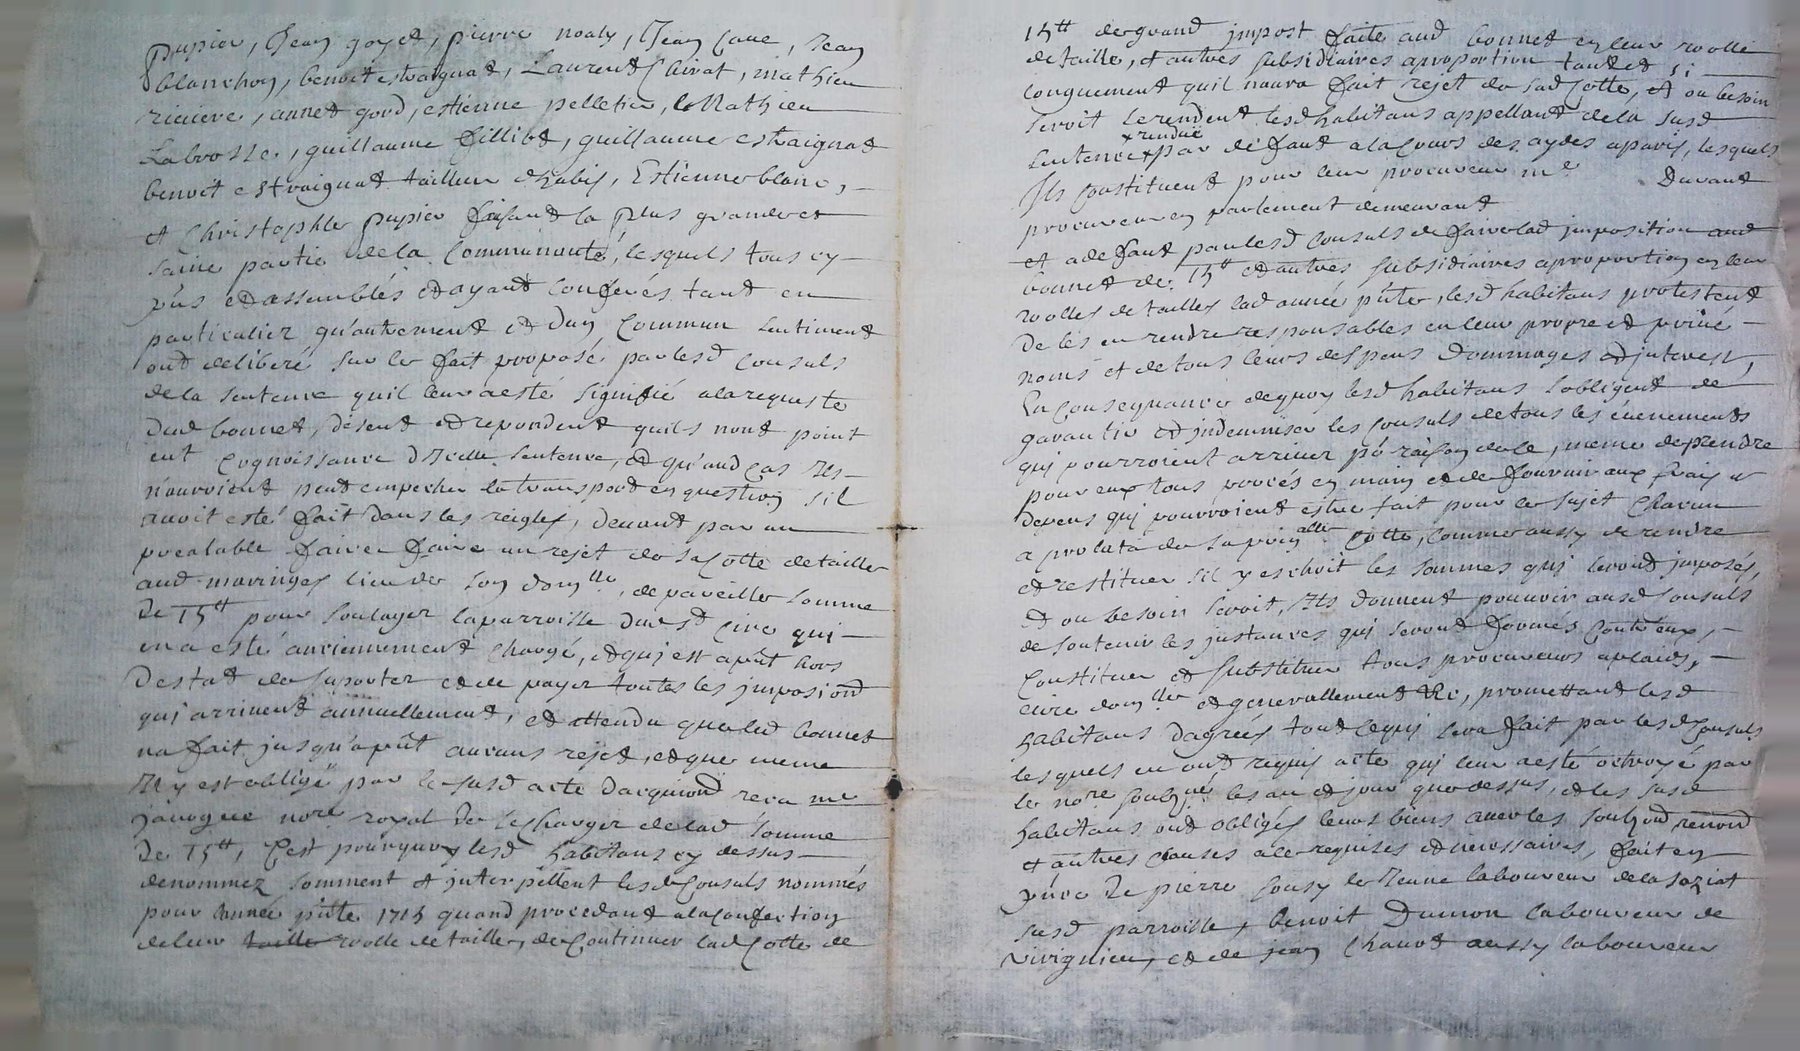 pupier, Jean goyet, pierre noaly, Jean Caue, Jean
blanchon, benoit estraignat, Laurend Chirat, mathieu
riviere, annet gord, estienne pelletier, mathieu
Labrosse, guillaume filliot, guillaume estraignat
benoit estraignat tailleur dhabis, Estienne blanc,
et Christophle pupier faisant la plus grande et
saine partie de la Communauté, lesquels tous cy
pñs et assemblés et ayant conferés tant en
particulier qu'autrement et dun commun sentiment
ont deliberé sur le fait proposé par lesd consuls
de la sentence quil leur a esté signifié a la requeste
dud bonnet, disent et repondent quils nont point
eut cognoissance dIcelle sentence, et qu'aud cas Ils
n'auroient peut empecher le transport en question sil
auoit esté fait dans les reigles, deuant par un
prealable faire faire un rejet de sa cotte de taille
aud maringes lieu de son domlle, de pareille somme
de 15tt pour soulager la parroisse dud sd Cire qui
en a esté anciennement chargé, et qui est apñt hors
destat de suporter et de payer toutes les imposiond
qui arrivent annuellement, et attendu que led bonnet
na fait jusqu'apñt aucuns rejet, et que meme
Il y est obligé par le susd acte dacquiond receu me
nore royal de descharger de lad somme
de 15tt, C'est pourquoy lesd habitans cy dessus
denommez somment et interpellent lesd Consuls nommés
pour lannée pñte 1715 quand procedant a la confection
de leur taille roolle de tailles, de continuer lad cotte de
15tt de grand impost faite aud bonnet en leur roolle
de taille, et autres subsidiaires a proportion tant et si
longuement quil naura fait rejet de sad cotte, et ou besoin
seroit se rendent lesd habitans appellant de la susd
sentence rendue par defaut a la cours des aydes a paris, lesquels
Ils constituent pour leur procureur me Durand
procureur en parlement demeurant
et a defaut par lesd consuls de faire lad imposition aud
bonnet de 15tt et autres subsidiaires a proportion en leur
roolles de tailles lad année pñte, lesd habitans protestent
de les en rendre responsables en leur propre et privé
noms et de tous leurs despens dommages et interest,
En consequance de quoy lesd habitans sobligent de
garantir et indemniser les consuls de tous les évenements
qui pourroient arriver pr raison de ce, meme de prendre
pour eux tous procés en main et de fournir aux frais et
depens qui pourroient estre fait pour le sujet chacun
a prolata de sa prinalle cotte, comme aussy de rendre
et restituer sil y eschoit les sommes qui seront imposés,
et ou besoin seroit, Ils donnent pouvoir ausd consuls
de soutenir les instances qui seront formés contr'eux,
constituer et substituer tous procureurs a plaids,
eire domlle et generallement &c, promettant lesd
habitans dagreer tout ce qui sera fait par lesd consuls
lesquels en ont requis acte qui leur a esté octroyé par
le nore soubzné les an et jour que dessus, et les susd
habitans ont obligés leurs biens auec les soubzond renond
et autres clauses a ce requises et necessaires, fait en
pñce de pierre cousy le Jeune laboureur de la
susd parroisse, benoit Dumon laboureur de
virignieu, et de jean chauot aussy laboureur